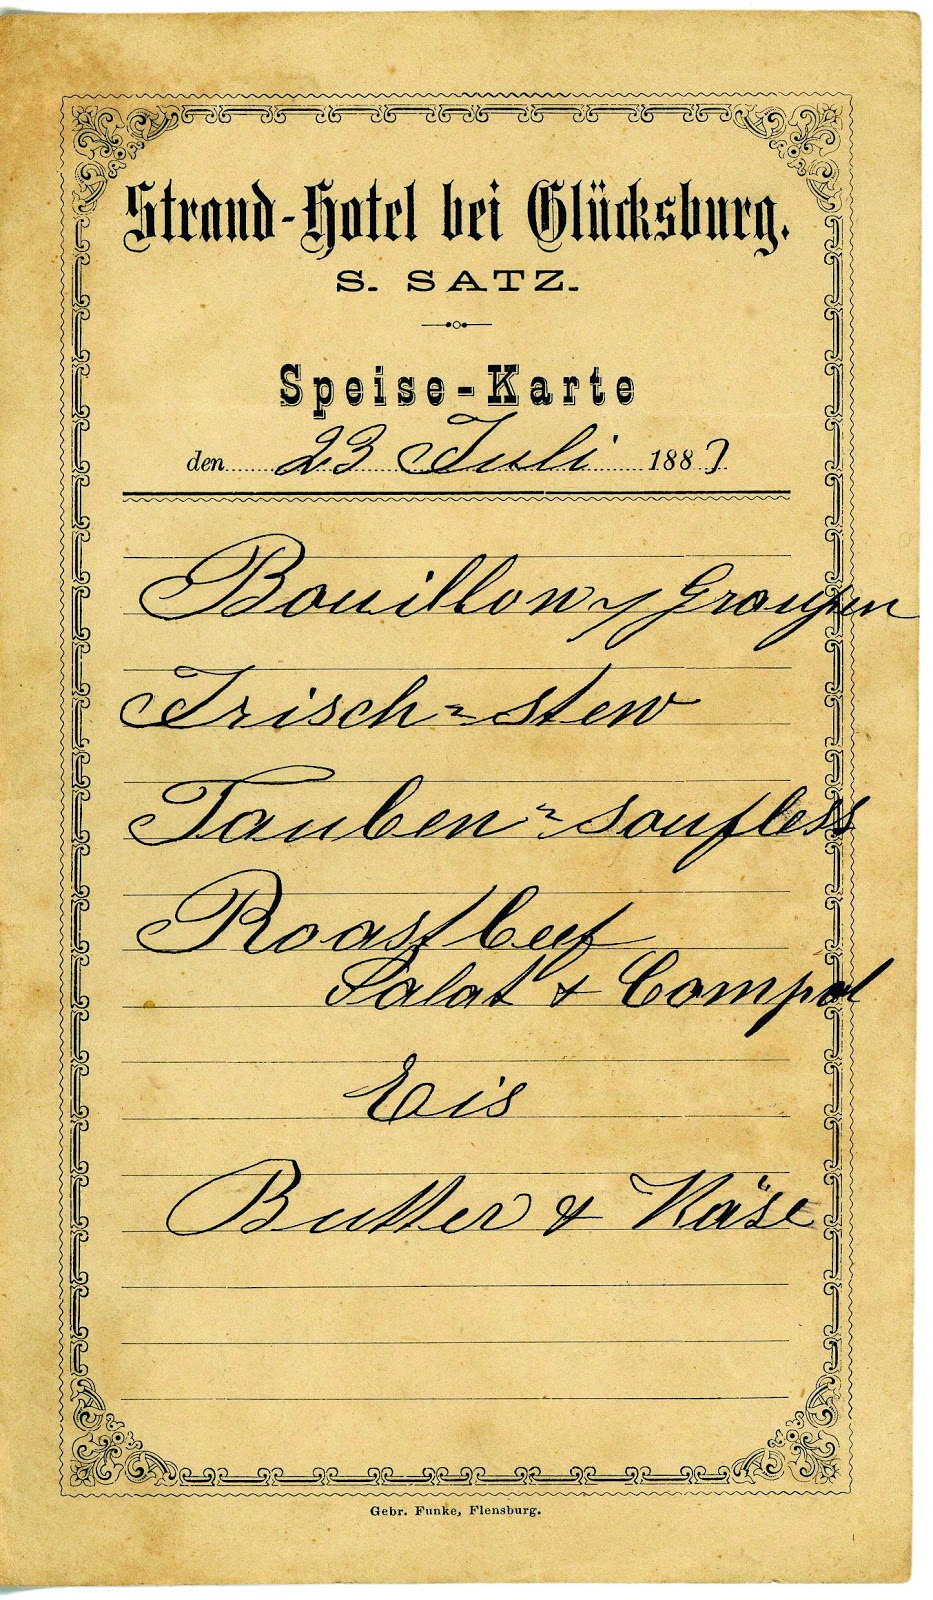 Strand-Hotel bei Glücksburg.
S. SATZ.
Speise-Karte
den 23 Juli 1887
Bouillon m Graupen
Irisch=stew
Tauben=soufless
Roastbeef
Salat & Compot
Eis
Butter & Käse
Gebr. Funke, Flensburg.